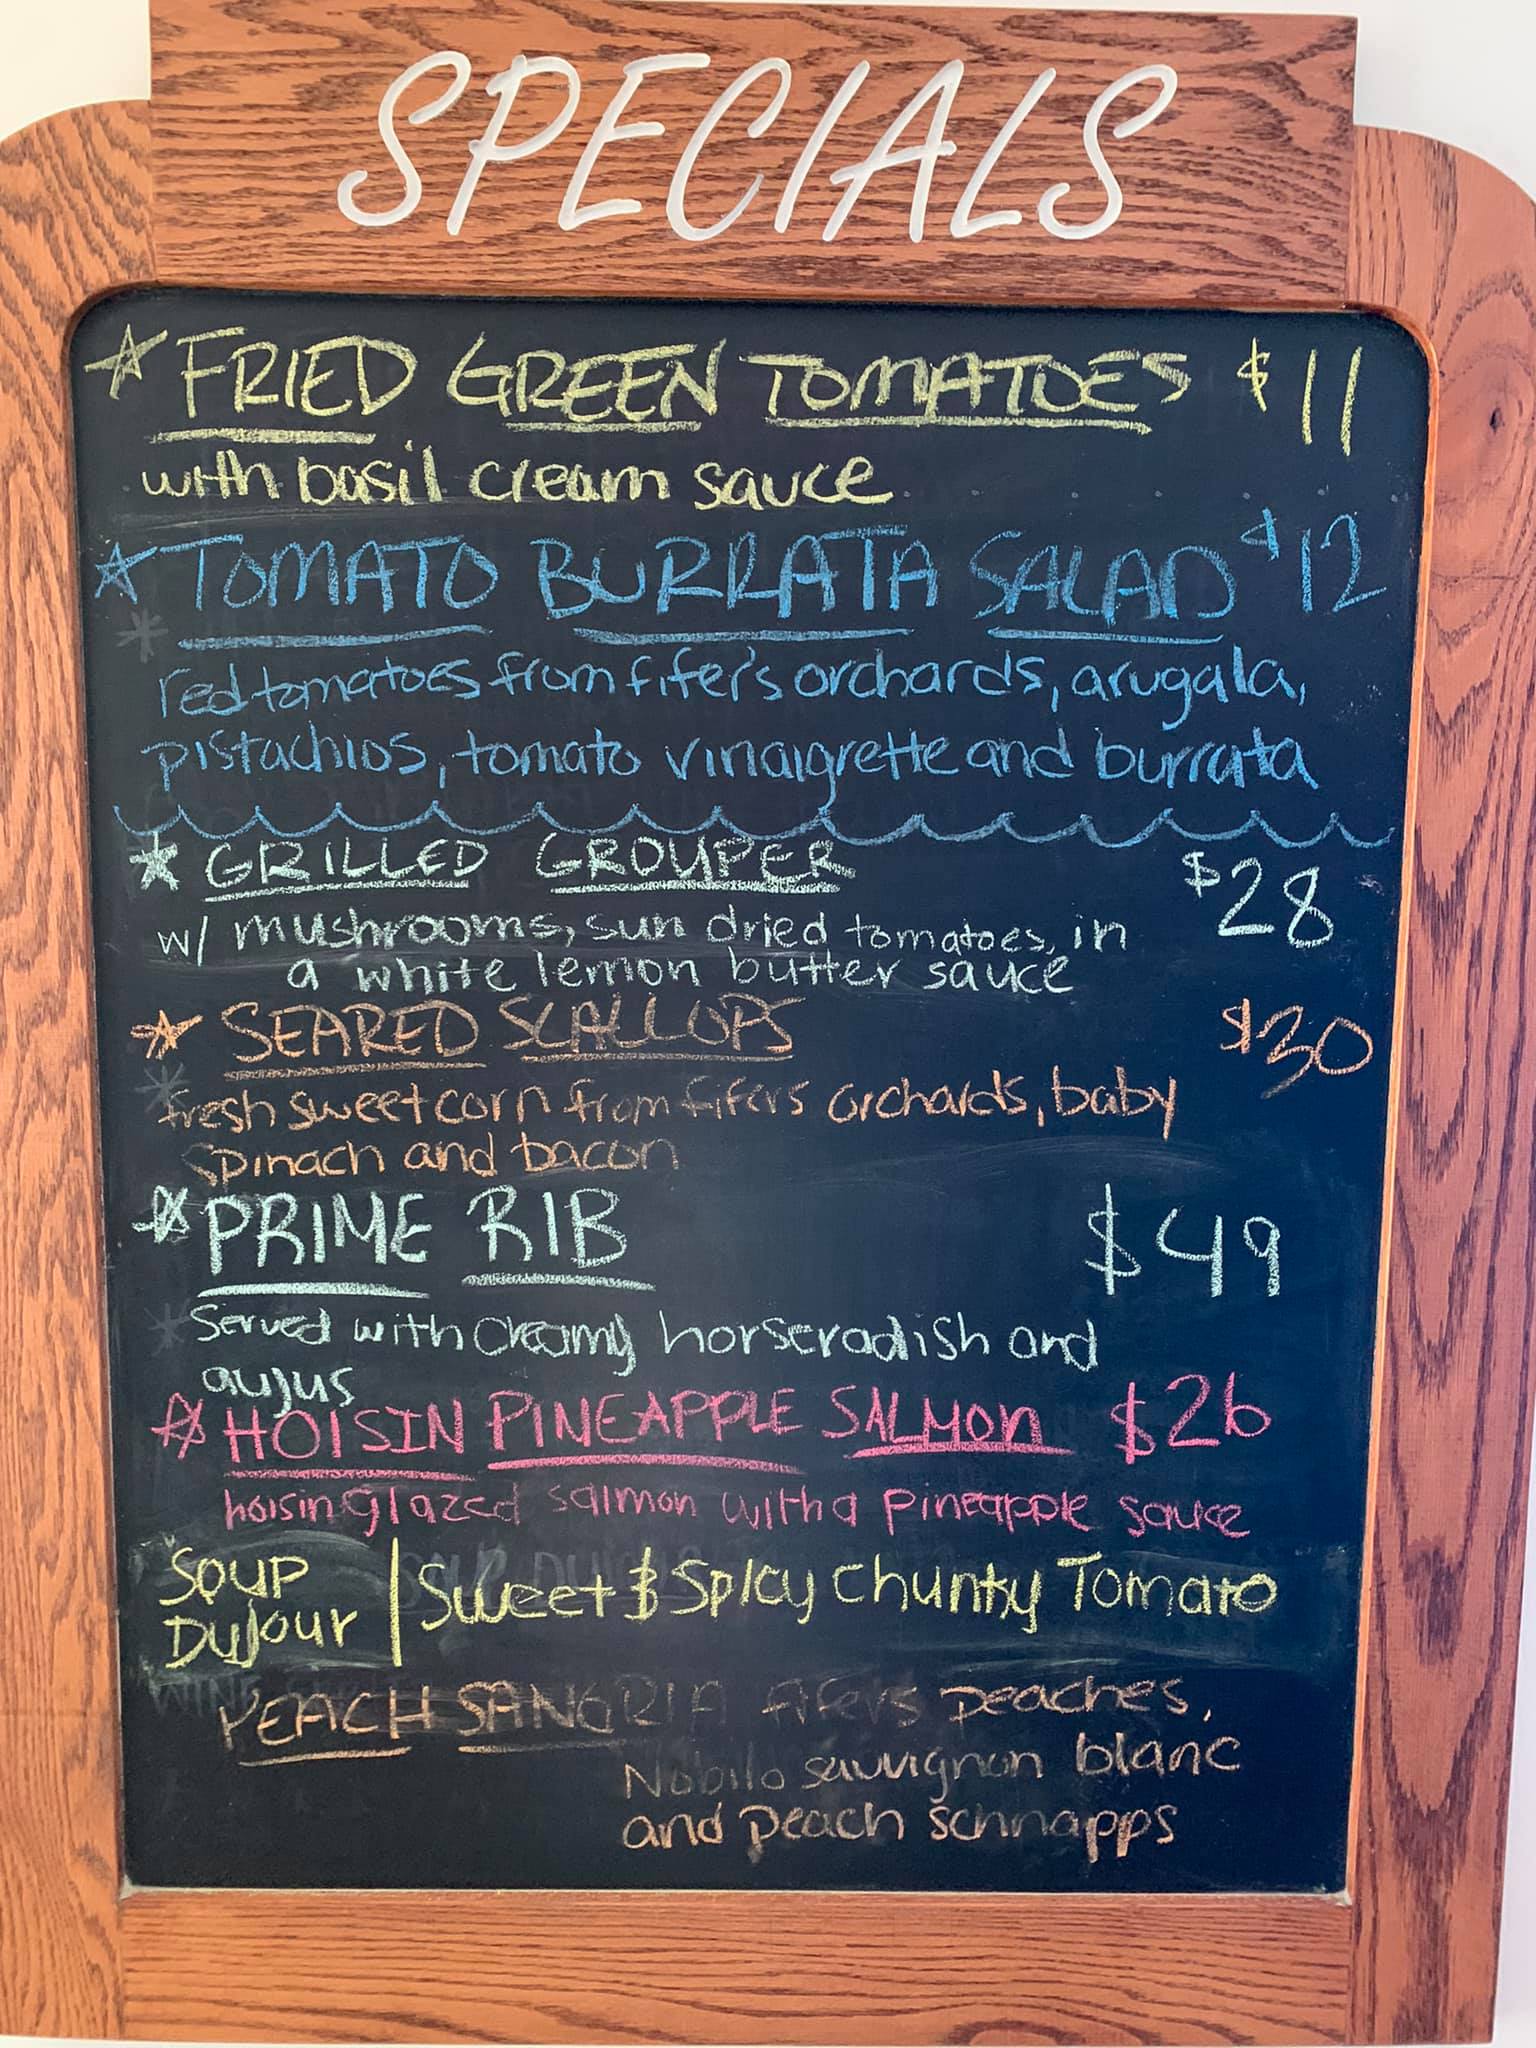 SPECIALS
FRIED GREEN TOMATOES $11
with basil cream sauce
TOMATO BURRATA SALAD $12
red tomatoes from fifer's orchards, arugala,
pistachios, tomato vinaigrette and burrata
GRILLED GROUPER $28
w/ mushrooms, sun dried tomatoes, in
a white lemon butter sauce
SEARED SCALLOPS $30
fresh sweet corn from fifers orchards, baby
spinach and bacon
PRIME RIB $49
Served with creamy horseradish and
aujus
HOISIN PINEAPPLE SALMON $26
hoisin glazed salmon with a pineapple sauce
SOUP DUJOUR | Sweet & Spicy Chunky Tomato
PEACH SANGRIA fifers peaches,
Nobilo sauvignon blanc
and peach schnapps